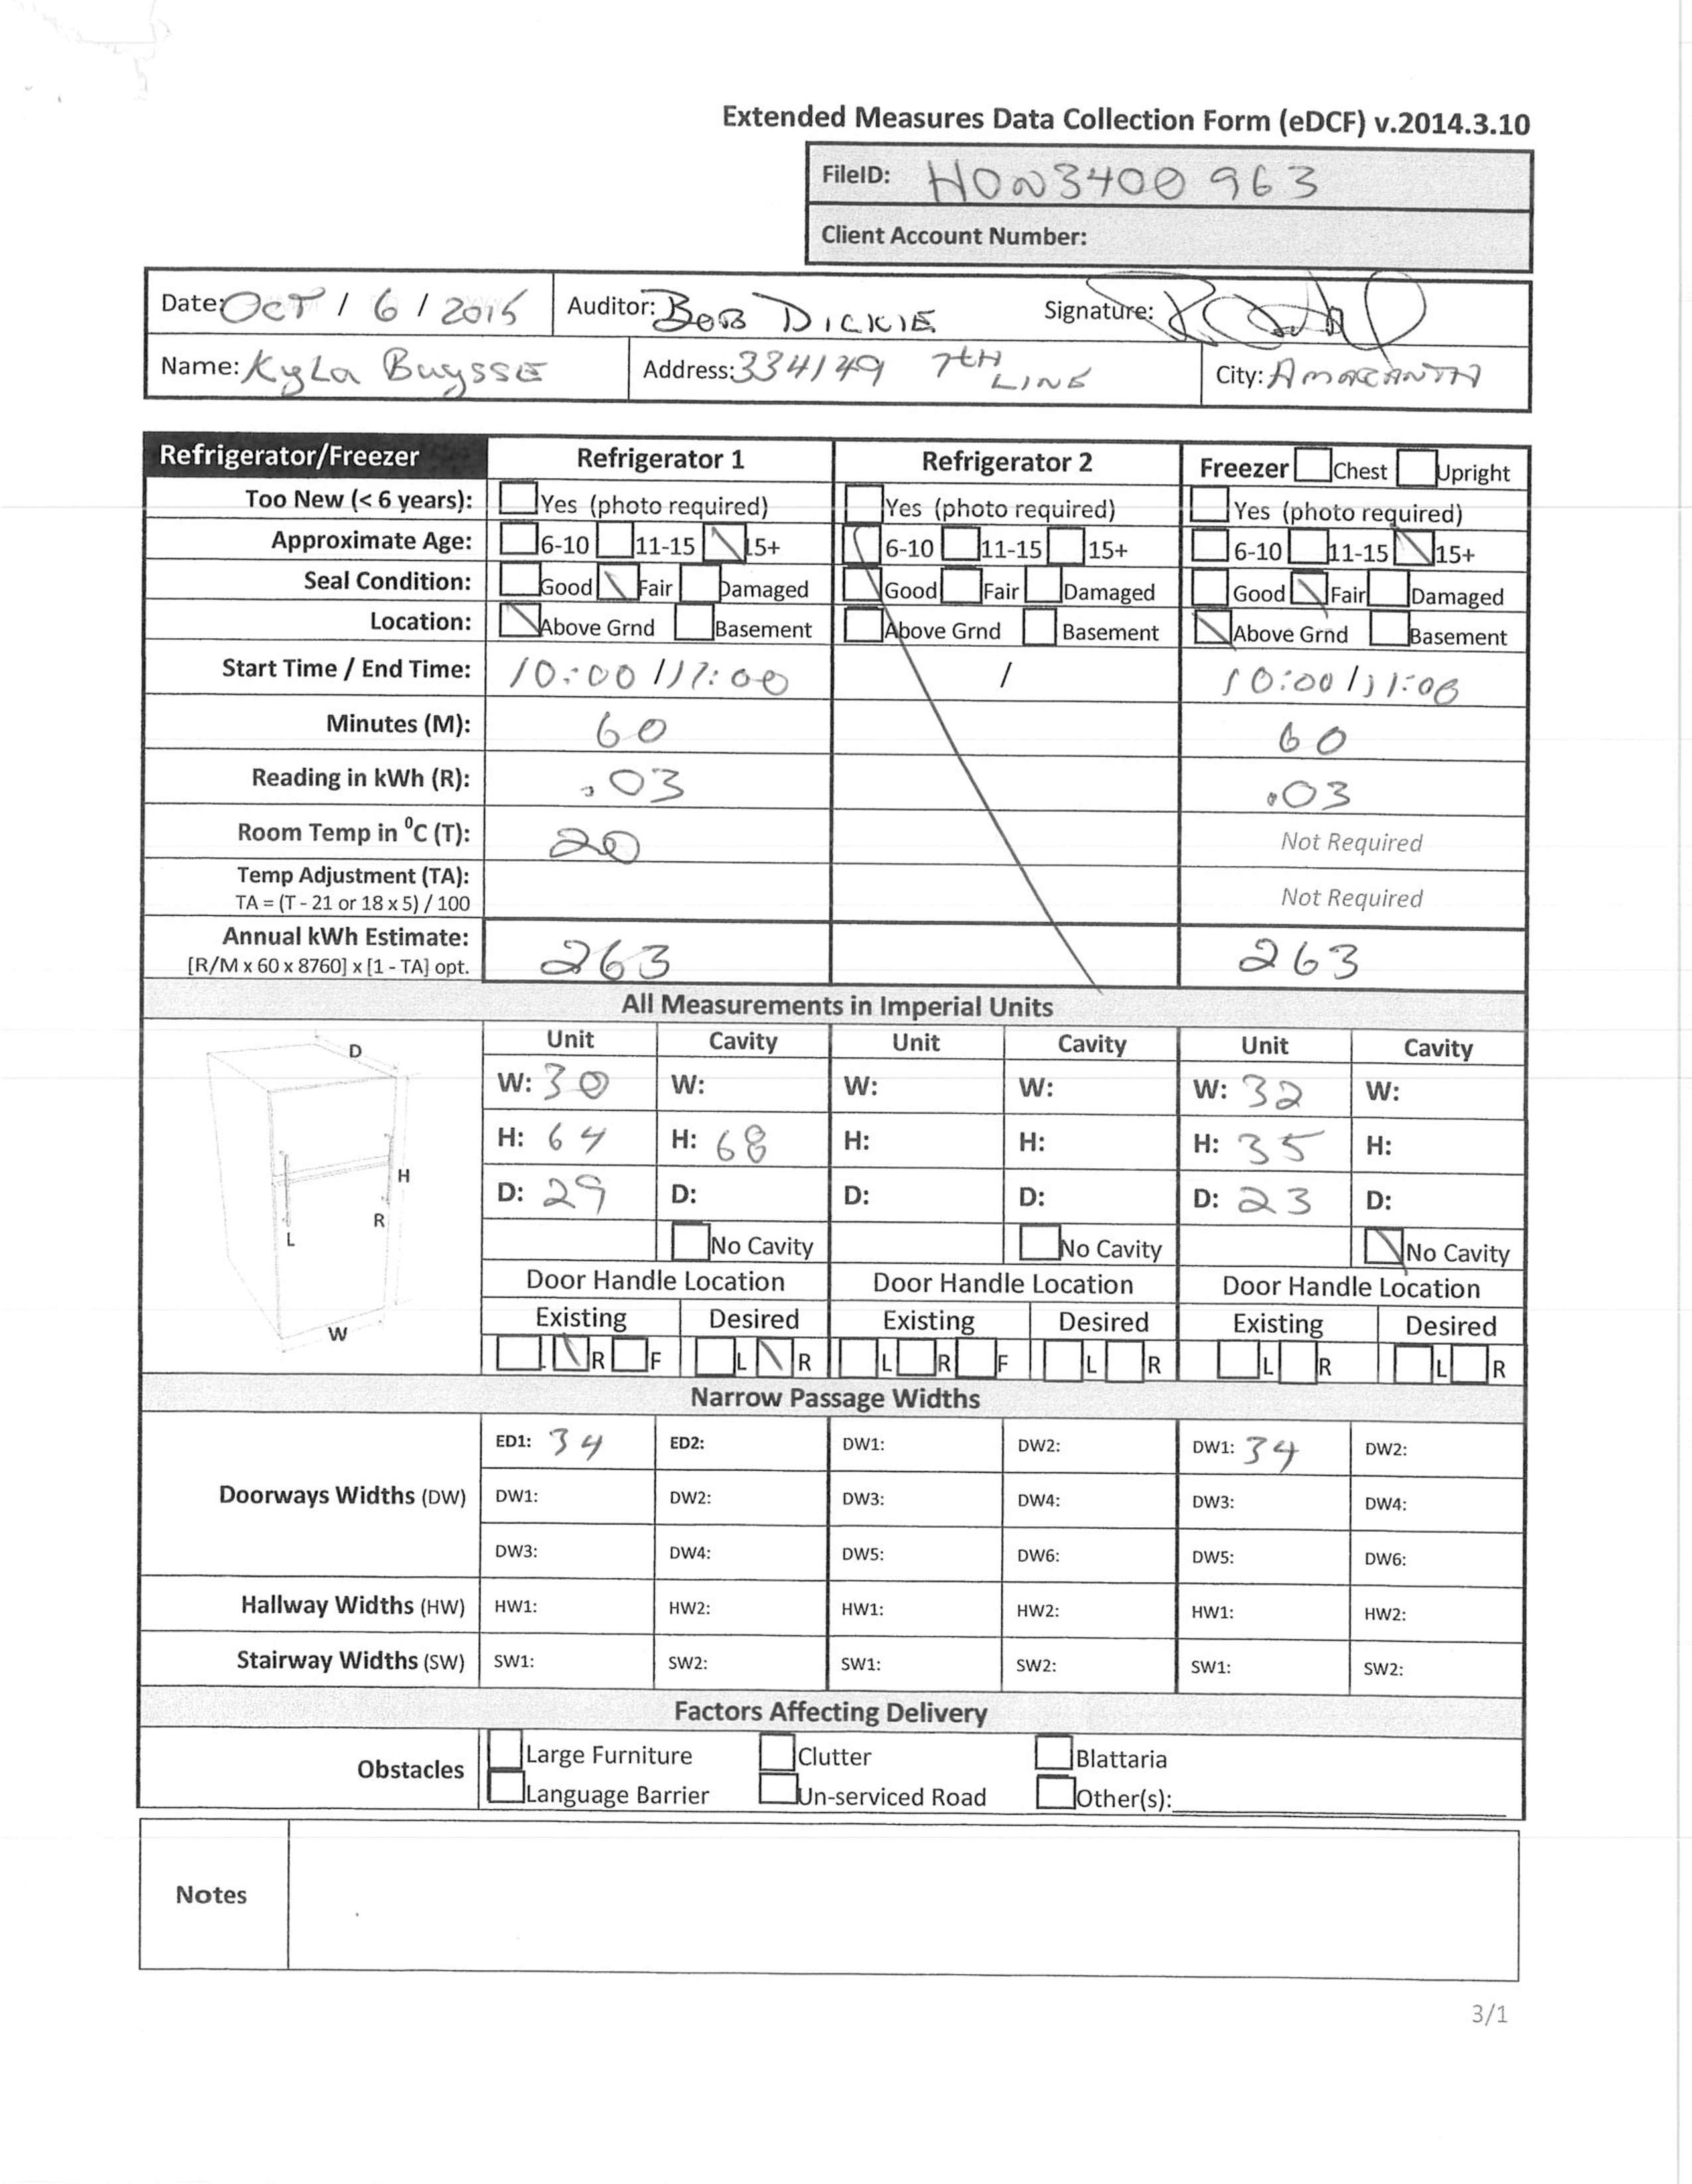 Extended Measures Data Collection Form (eDCF) v.2014.3.10
FileID: HON3400963
Client Account Number:
Date: OCT / 6 / 2015 Auditor: BOB DICKIE Signature:
Name: Kyla Buysse Address: 334149 7TH LINE City: AMARANTH
Refrigerator/Freezer Refrigerator 1 Refrigerator 2 Freezer Chest Upright
Too New (< 6 years): Yes (photo required) Yes (photo required) Yes (photo required)
Approximate Age: 6-10 11-15 15+ 6-10 11-15 15+ 6-10 11-15 15+
Seal Condition: Good Fair Damaged Good Fair Damaged Good Fair Damaged
Location: Above Grnd Basement Above Grnd Basement Above Grnd Basement
Start Time / End Time: 10:00 / 11:00 / 10:00 / 11:00
Minutes (M): 60 60
Reading in kWh (R): .03 .03
Room Temp in ⁰C (T): 20 Not Required
Temp Adjustment (TA): Not Required
TA = (T - 21 or 18 x 5) / 100
Annual kWh Estimate: 263 263
[R/M x 60 x 8760] x [1 - TA] opt.
All Measurements in Imperial Units
Unit Cavity Unit Cavity Unit Cavity
D
W: 30 W: W: W: W: 32 W:
H: 64 H: 68 H: H: H: 35 H:
H
D: 29 D: D: D: D: 23 D:
R
L
No Cavity No Cavity No Cavity
Door Handle Location Door Handle Location Door Handle Location
Existing Desired Existing Desired Existing Desired
W
R F L R L R F L R L R L R
Narrow Passage Widths
Doorways Widths (DW) ED1: 34 ED2: DW1: DW2: DW1: 34 DW2:
DW1: DW2: DW3: DW4: DW3: DW4:
DW3: DW4: DW5: DW6: DW5: DW6:
Hallway Widths (HW) HW1: HW2: HW1: HW2: HW1: HW2:
Stairway Widths (SW) SW1: SW2: SW1: SW2: SW1: SW2:
Factors Affecting Delivery
Obstacles Large Furniture Clutter Blattaria
Language Barrier Un-serviced Road Other(s):
Notes
3/1